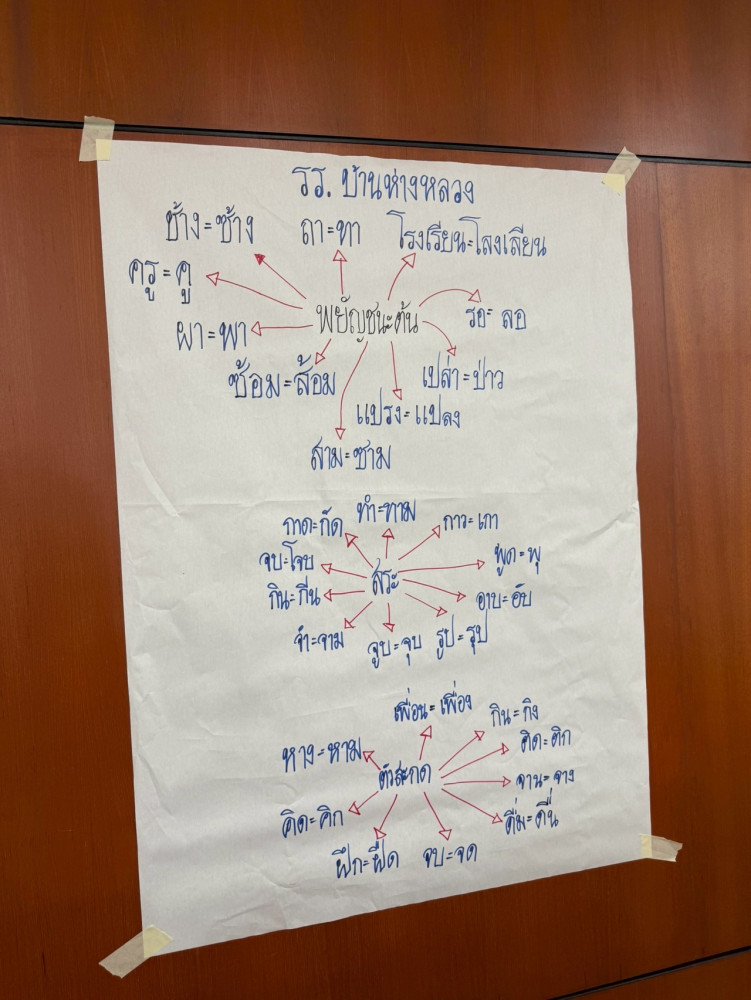 รร. บ้านห่างหลวง
ช้าง=ซ้าง
ถา=ทา
โรงเรียน=โลงเลียน
ครู=คู
ผา=พา
พยัญชนะต้น
รอ=ลอ
ซ้อม=ส้อม
เปล่า=ป่าว
แปรง=แปลง
สาม=ซาม
กาด=กัด
ทำ=ทาม
กาว=เกา
จบ=โจบ
สระ
พูด=พุ
กิน=กีน
อาบ=อับ
จำ=จาม
จูบ=จุบ
รูป=รุป
เพื่อน=เพื่อง
กิน=กิง
หาง=หาม
ตัวสะกด
ติด=ติก
จาน=จาง
คิด=คิก
ดื่ม=ดื่น
ฝึก=ฝืด
จบ=จด